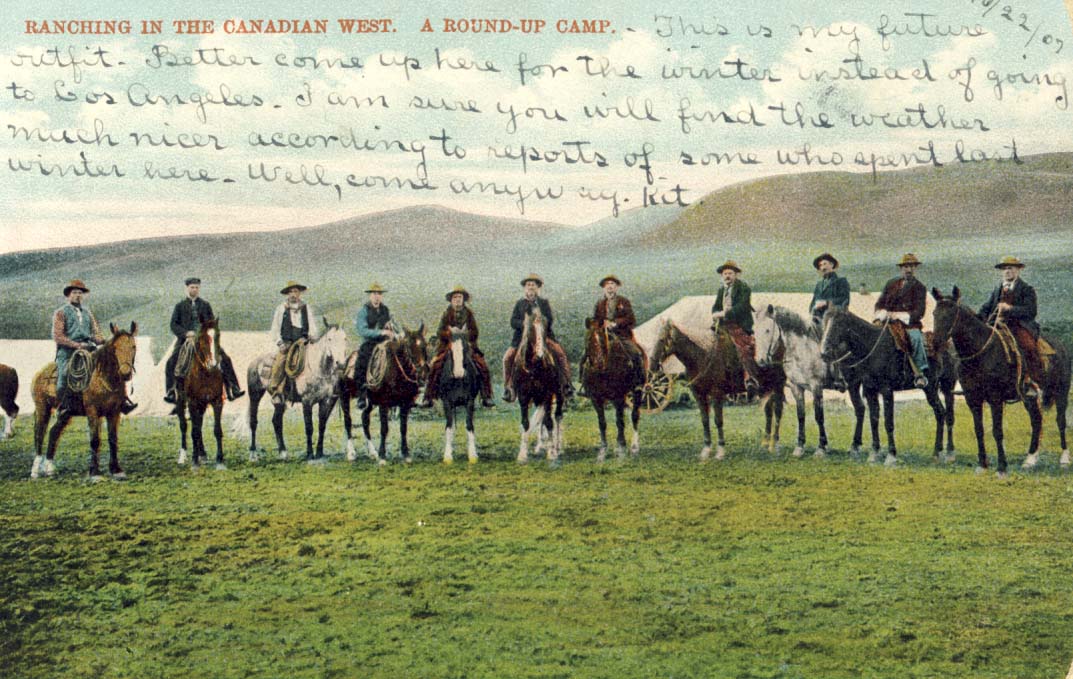 RANCHING IN THE CANADIAN WEST. A ROUND-UP CAMP. - This is my future
10/22/07
outfit - Better come up here for the winter instead of going
to Los Angeles - I am sure you will find the weather
much nicer according to reports of some who spent last
winter here - Well, come anyway. Kit.